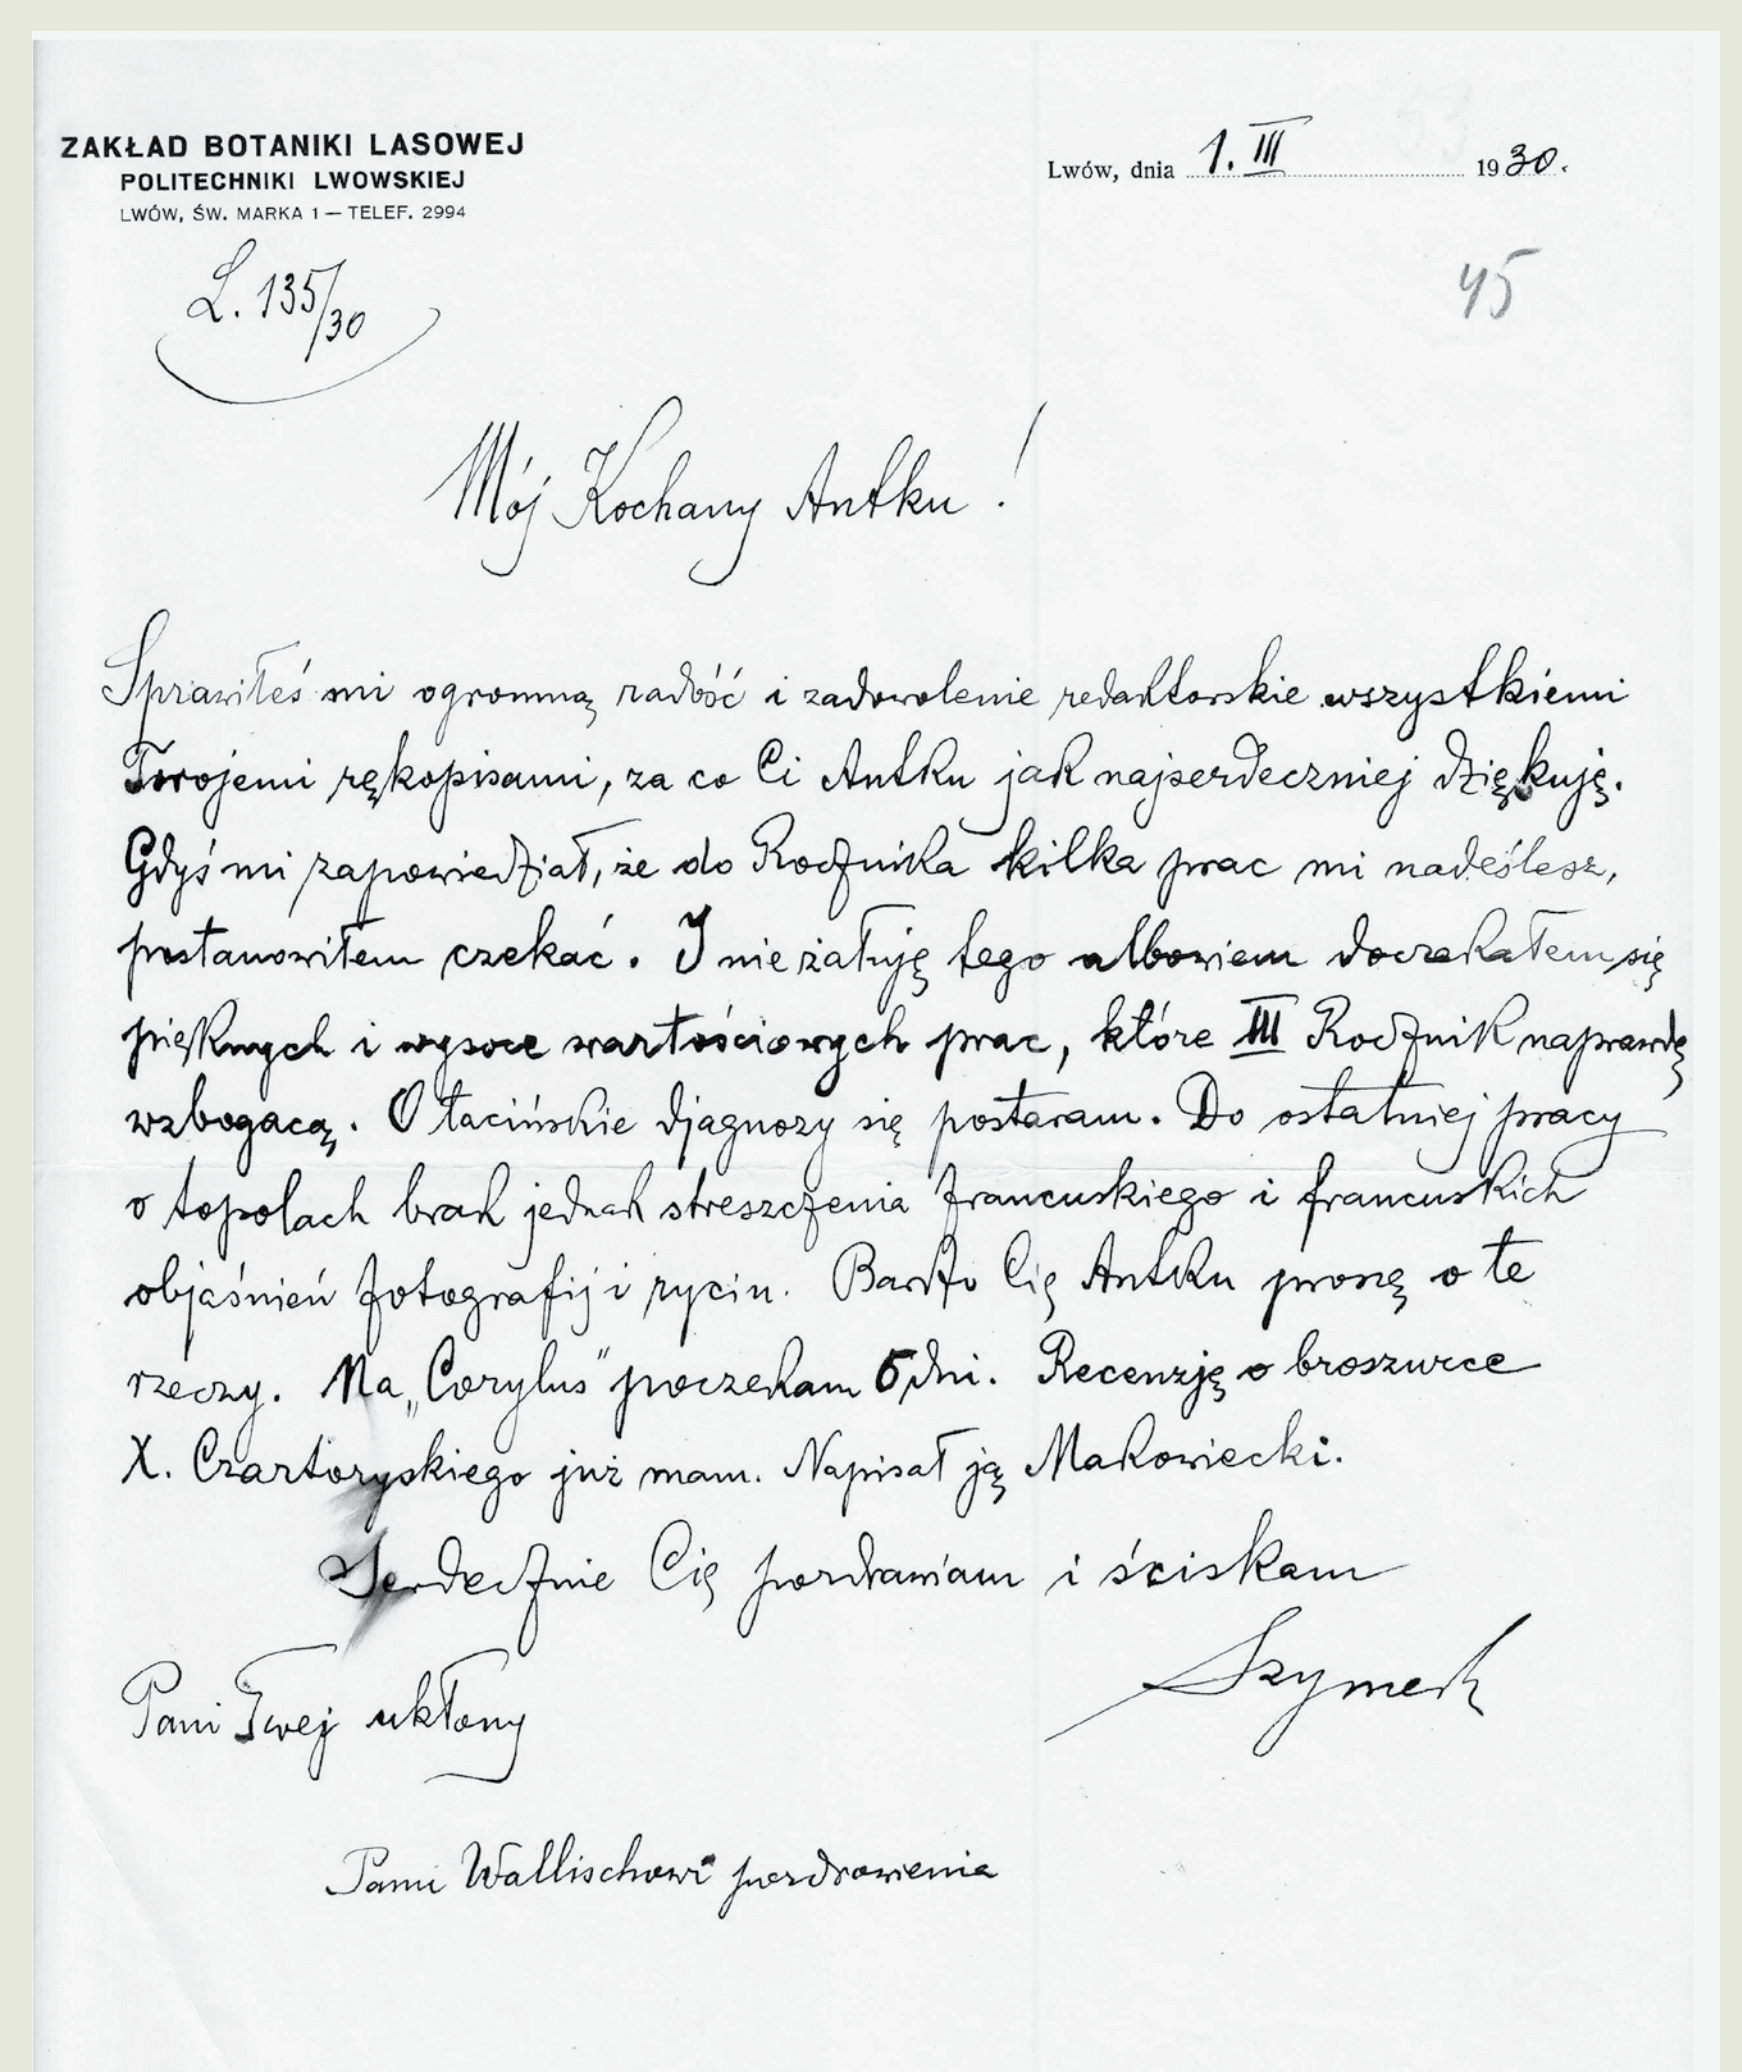 ZAKŁAD BOTANIKI LASOWEJ
POLITECHNIKI LWOWSKIEJ
LWÓW, ŚW. MARKA 1 — TELEF. 2994
Lwów, dnia 1. III 1930.
L. 135/30
45
Mój Kochany Antku!
Sprawiłeś mi ogromną radość i zadowolenie redaktorskie wszystkiemi
Twojemi rękopisami, za co Ci Antku jak najserdeczniej dziękuję.
Gdyś mi zapowiedział, że do Rocznika kilka prac mi nadeślesz,
postanowiłem czekać. I nie żałuję tego albowiem doczekałem się
pięknych i wysoce wartościowych prac, które III Rocznik naprawdę
wzbogacą. O łacińskie djagnozy się postaram. Do ostatniej pracy
o topolach brak jednak streszczenia francuskiego i francuskich
objaśnień fotografij i rycin. Bardzo Cię Antku proszę o te
rzeczy. Na „Corylus" poczekam 5 dni. Recenzję o broszurce
X. Czartoryskiego już mam. Napisał ją Makowiecki.
Serdecznie Cię pozdrawiam i ściskam
Szymek
Pani Twej ukłony
Panu Wallischowi pozdrowienia